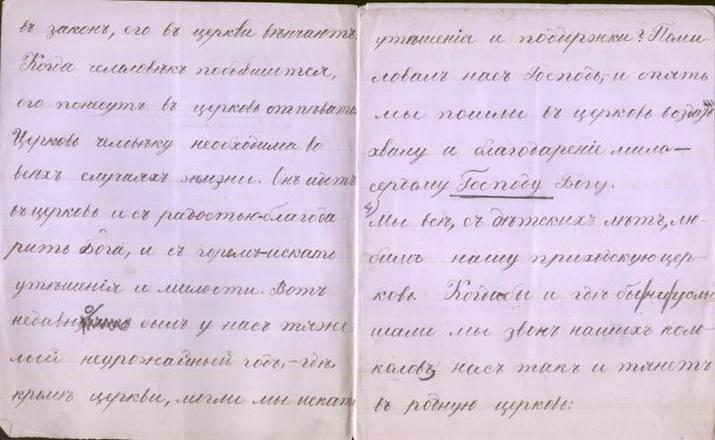 въ законъ, его въ церкви вѣнчаютъ.
Когда человѣкъ
его понесутъ въ церковь отпѣвать.
Церковь человѣку необходима во
всѣхъ случаяхъ жизни. Онъ идетъ
въ церковь и съ радостью-благода
рить Бога, и съ горемъ-искать
утѣшенія и милости. Вотъ
недавно былъ у насъ тяже
лый неурожайный годъ,-гдѣ,
кромѣ церкви, могли мы искать
утѣшенія и поддержки? Поми-
ловалъ насъ Господь,-и опять
мы пошли въ церковь
хвалу и благодареніе мило-
сердому Господу Богу.
Мы всѣ, съ дѣтскихъ лѣтъ, лю-
бимъ нашу приходскую цер-
ковь. Когда бы и гдѣ бы ни услы
шали мы звонъ нашихъ коло
коловъ насъ такъ и тянетъ
въ родную церковь: